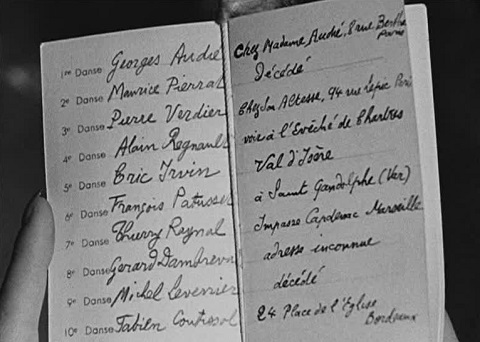 1re Danse Georges Audié
2e Danse Maurice Pierral
3e Danse Pierre Verdier
4e Danse Alain Regnault
5e Danse Eric Irvin
6e Danse François Patusset
7e Danse Thierry Raynal
8e Danse Gerard Dambreval
9e Danse Michel Levernier
10e Danse Fabien Coutissol
Chez Madame Audié, 8 rue Berthe
Paris
Décédé
Chez Son Altesse, 94 rue Lepic Paris
voir à l'Evêché de Chartres
Val d'Isère
à Saint Gandolphe (Var)
Impasse Capdenac Marseille
adresse inconnue
décédé
24 Place de l'Eglise
Bordeaux